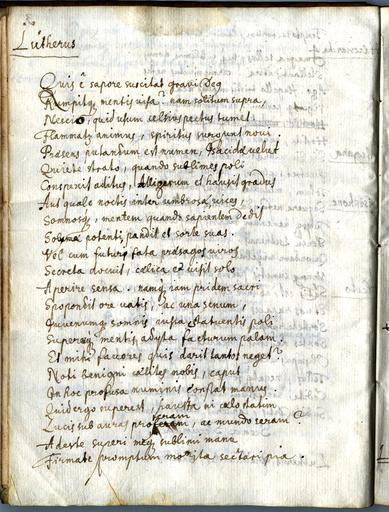 Lutherus
Quis ē sapore suscitat gravi Deg
Rumpitq mentis visa? nam solitum supra,
Nescio, quid utum celsius pectus tumet
Flammatq animus, spiritus surgunt novi.
Præsens putandum est numen, Isacidæ velut
Quiete strato, quando sublimes poli
Conspexit aditus, et hausit gradus
Aut quale noctis inter umbrosa vices,
Somnosq, mentem quando sapientem dedit
potenti, pandit et sorte suas.
Vel cum futuri fata præsagos viros
Secreta docuit, cælica et visit solo
Aperire sensa. namq iam pridem sacri
Spopondit ore vatis, ac una senum,
Iuvenumq somnis ausa statuentis poli
Superaq mentis adyta facturum palam.
Et mihi favores quis dari tantos neget?
Noti benigni cælites nobis, caput
In hoc profusa numinis constat manus
Quid ergo superest, hausta ni cælo statim
feram
Lucis sub auras proferam, ac mundo seram?
Adeste superi meq sublimi manu
Firmate promptum ita sectari pia.